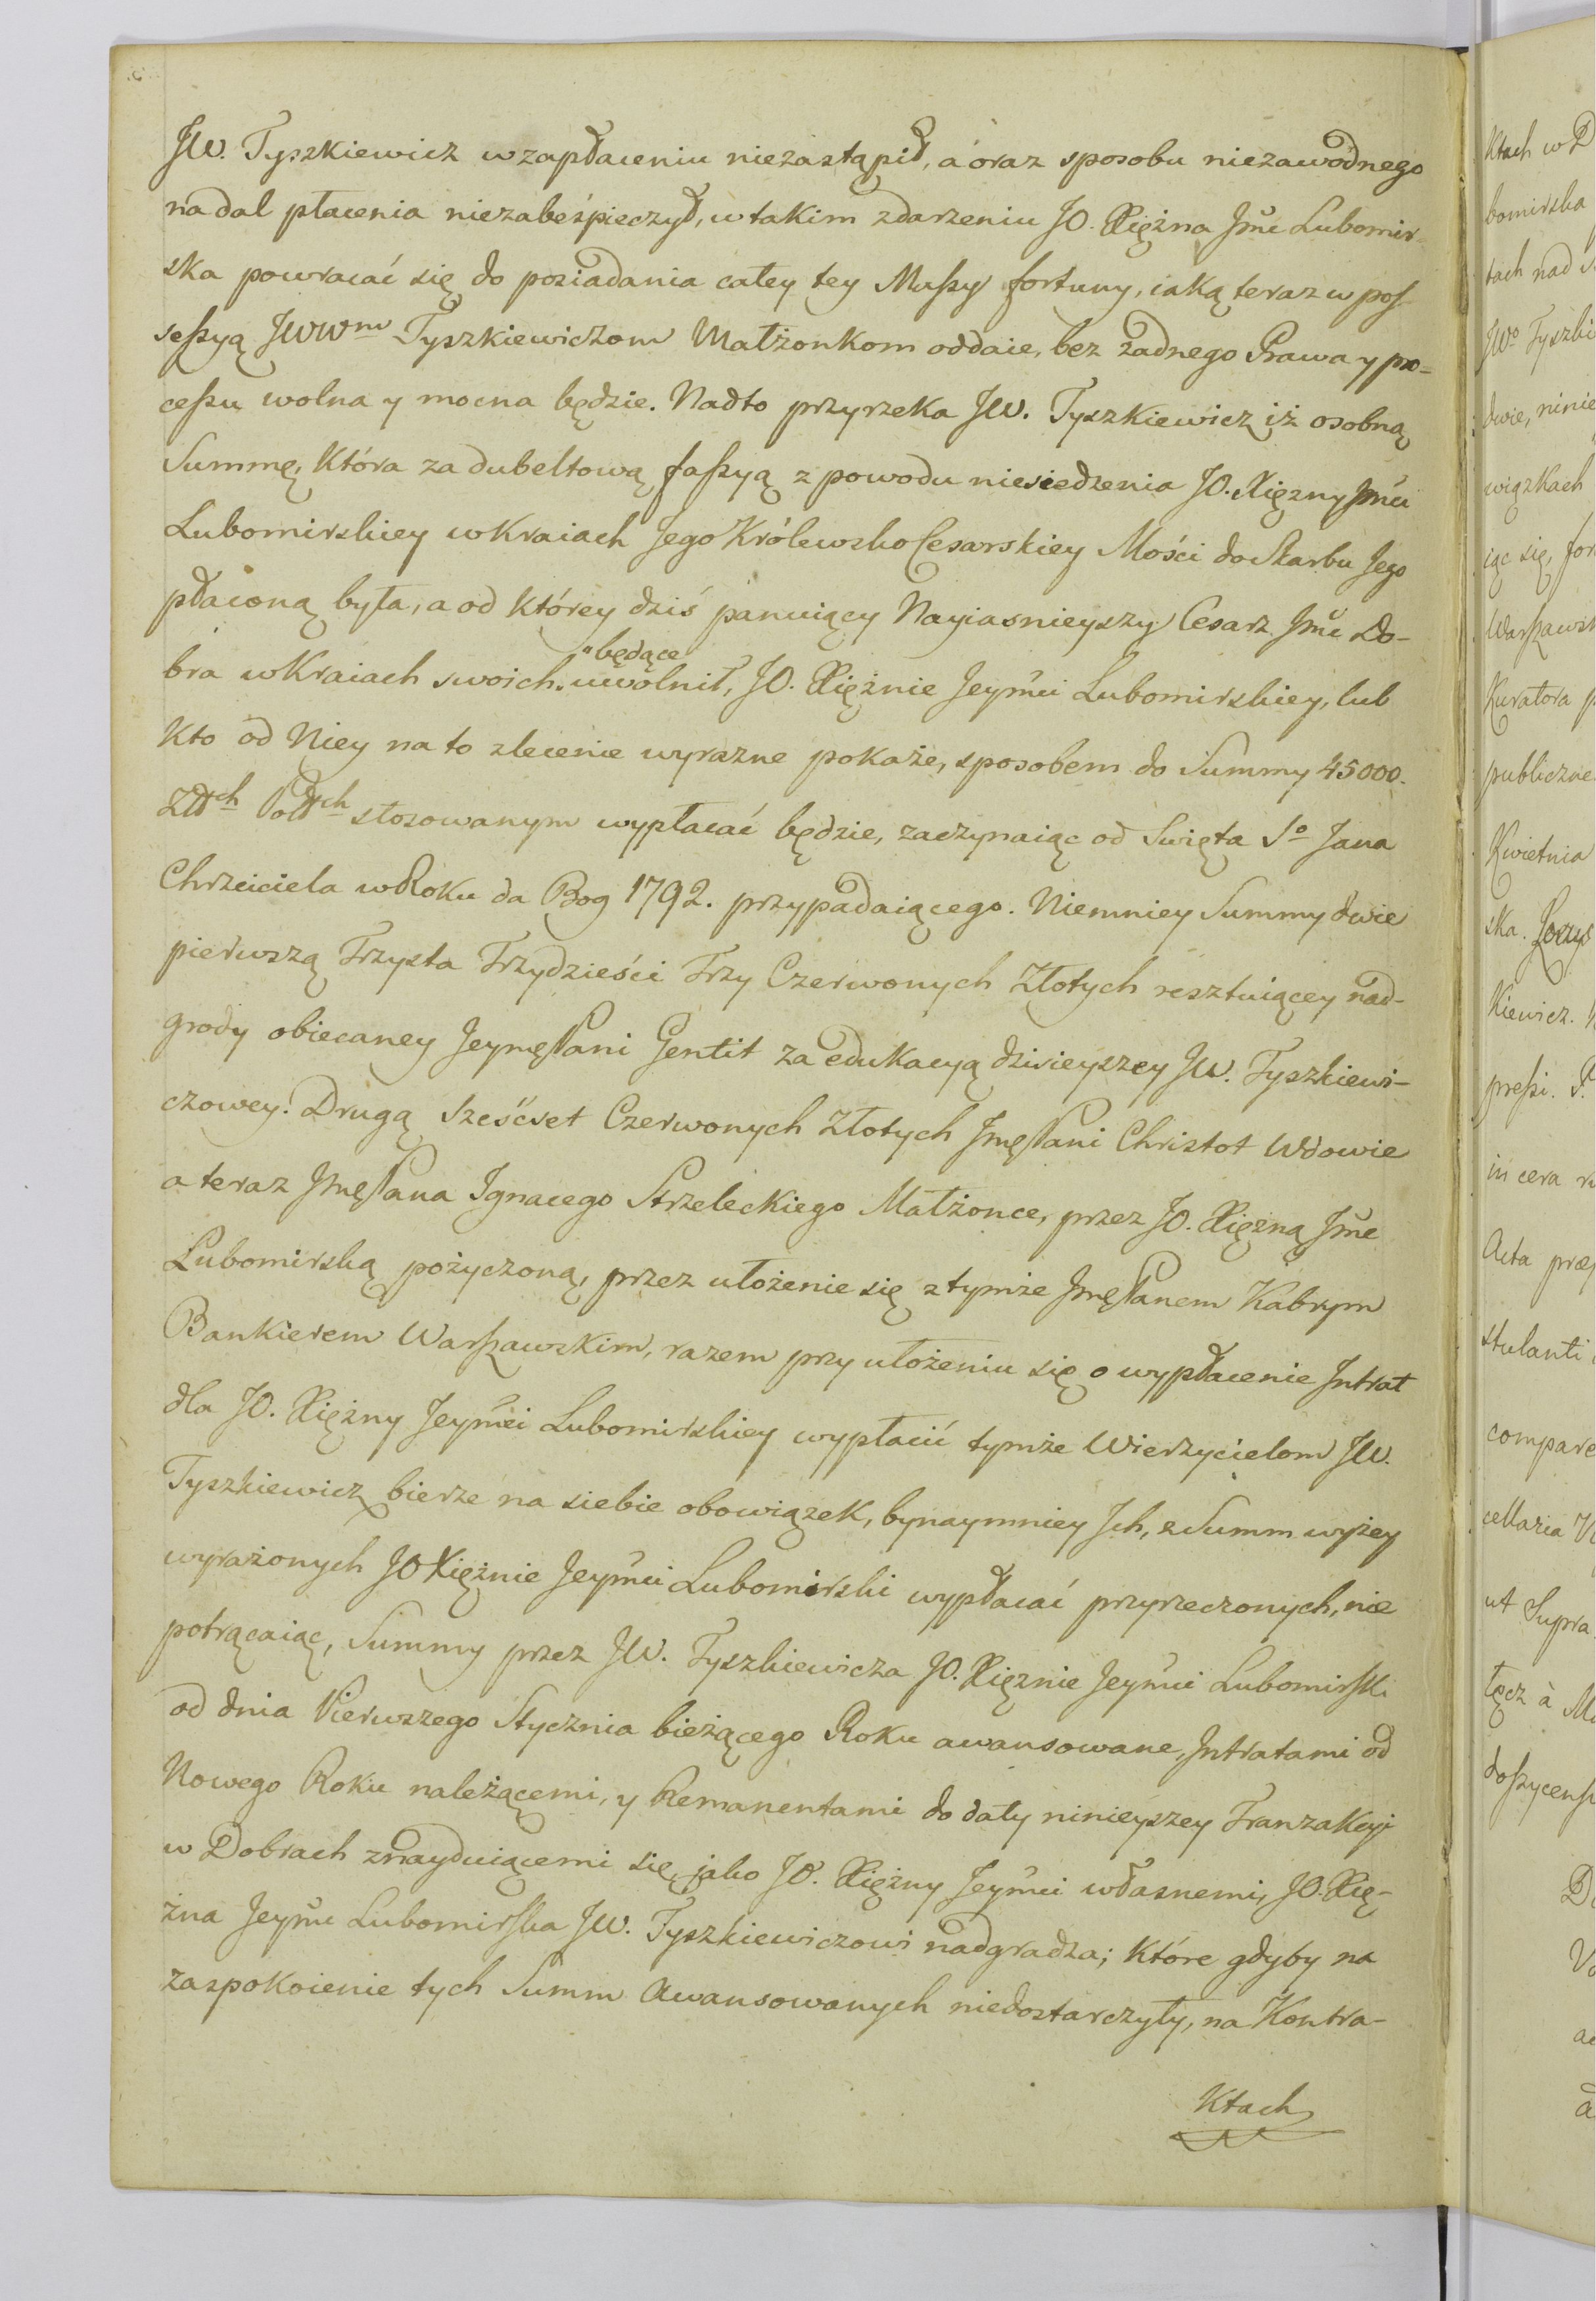 JW. Tyszkiewicz w zapłaceniu niezastąpił, a oraz sposobu niezawodnego
na dal płacenia niezabeśpieczył, w takim zdarzeniu JO. Xiężna Jmć Lubomir-
ska powracać się do posiadania całey tey Maßy fortuny, iaką teraz w pos-
seßyą JWWm Tyszkiewiczom Małżonkom oddaie, bez żadnego Prawa y pro-
ceßu wolna y mocna będzie. Nadto przyrzeka JW. Tyszkiewicz iż osobną
Summę, Która za dubeltową faßyą z powodu niesiedzenia JO. Xięzny Jmći
Lubomirskiey w Kraiach Jego Królewsko Cesarskiey Mości do Skarbu Jego
płaconą była, a od Którey dziś panuiący Nayiasnieyszy Cesarz Jmć Do-
bra w Kraiach swoich "będące uwolnił, JO. Xiężnie Jeymći Lubomirskiey, lub
Kto od Niey na to zlecenie wyrazne pokaże, sposobem do Summy 45000.
Złłch Polłch stosowanym wypłacać będzie, zaczynaiąc od Swięta So Jana
Chrzciciela w Roku da Bog 1792. przypadaiącego. Niemniey Summy dwie
pierwszą Trzysta Trzydzieści Trzy Czerwonych Złotych resztuiącey nad-
grody obiecaney Jeymę Pani Gentit za edukacyą dzisieyszey JW. Tyszkiewi-
czowey. Drugą Sześćset Czerwonych Złotych Jmę Pani Christot Wdowie
a teraz Jmę Pana Ignacego Strzeleckiego Małżonce, przez JO. Xiężną Jmć
Lubomirską pożyczoną, przez ułożenie się z tymże Jmę Panem Kabrym
Bankierem Warszawskim, razem przy ułożeniu się o wypłacenie Intrat
dla JO. Xiężny Jeymći Lubomirskiey wypłacić tymże Wierzycielom JW.
Tyszkiewicz bierze na siebie obowiązek, bynaymniey Ich, z Summ wyżey
wyrażonych JO Xiężnie Jeymći Lubomirski wypłacać przyrzeczonych, nie
potrącaiąc, Summy przez JW. Tyszkiewicza JO. Xięznie Jeymći Lubomirski
od dnia Pierwszego Stycznia bieżącego Roku awansowane, Intratami od
Nowego Roku należącemi, y Remanentami do daty ninieyszey Tranzakcyi
w Dobrach znayduiącemi się, jako JO. Xiężny Jeymći własnemi, JO. Xię-
żna Jeymć Lubomirska JW. Tyszkiewiczowi nadgradza; Które gdyby na
zaspokoienie tych Summ Awansowanych niedostarczyły, na Kontra-
Ktach
Ktach w D
bomirska
tach nad
JWo Tyszki
dwie, ninie
wiązkach
iąc się, for
Warszawsk
Kuratora p
publiczne
Kwietnia
ska.
Kiewicz.
preßi. P.
in cera
Acta præ
stulanti
compare
cellaria
ut Supra
tęcz à